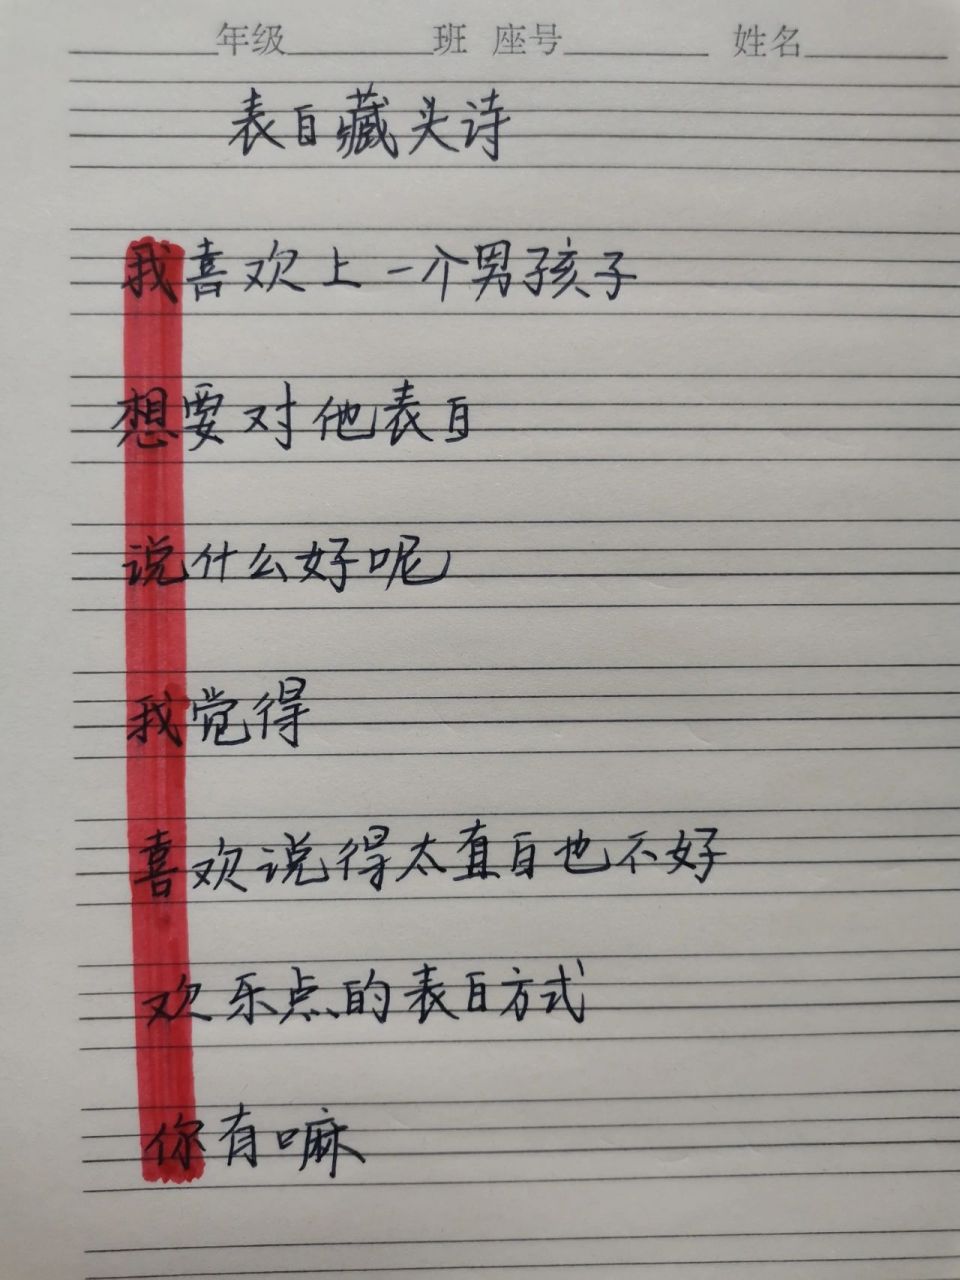 年级 班 座号 姓名
表白藏头诗
我喜欢上一个男孩子
想要对他表白
说什么好呢
我觉得
喜欢说得太直白也不好
欢乐点的表白方式
你有嘛